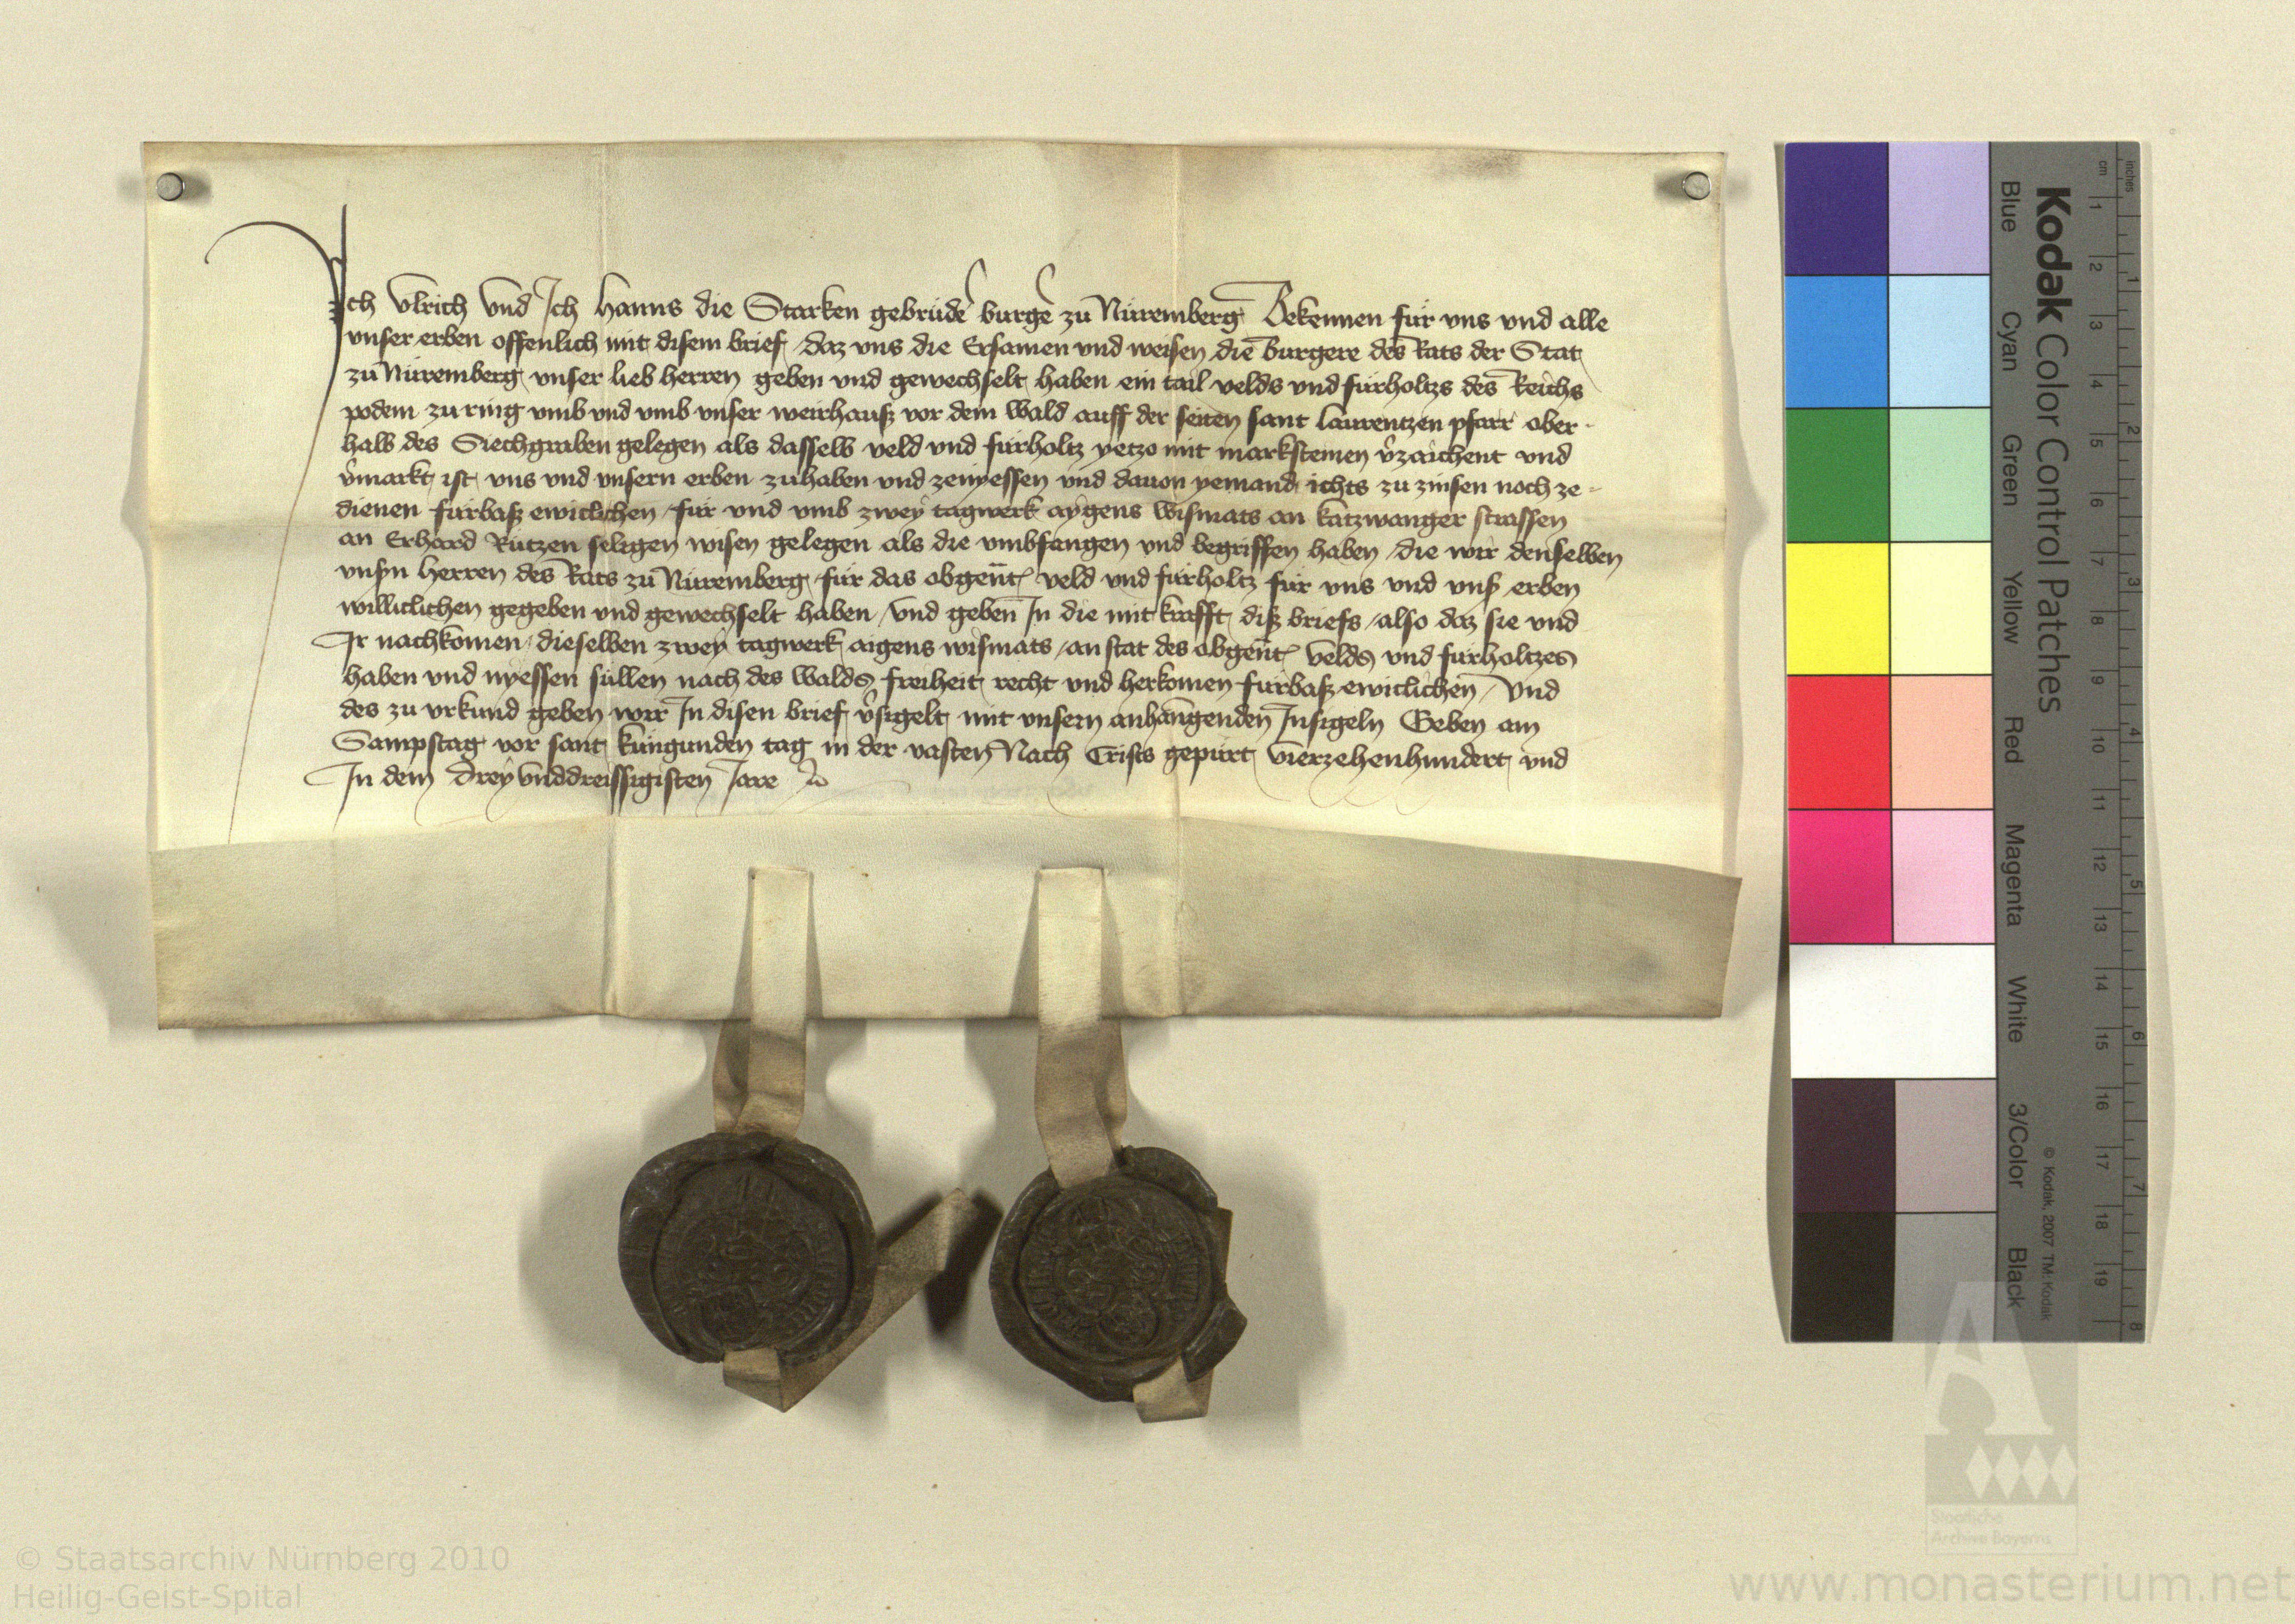 Ich Ulrich und Ich Hanns die Starken gebrüder burger zu Nüremberg Bekennen für uns und alle
unser erben offenlich mit disem brief / daz uns die Ersamen und weisen die burgere des Rats der Stat
zu Nüremberg unser lieb herren geben und gewechselt haben ein tail velds und fürholtzs des Reichs
podem zu ring umb und umb unser weirhauß vor dem wald auff der seiten sant laurentzen pfarr ober-
halb des Siechgraben gelegen als dasselb veld und fürholtz yetzo mit marksteinen v̂zaichent und
v̂markt ist uns und unsern erben zuhaben und zenyessen und davon yemand ichts zu zinsen noch ze-
dienen fürbaß ewiclichen / für und umb zwey tagwerk aygens wismats an katzwanger strassen
an Erhard Rützen seligen wisen gelegen als die umbfangen und begriffen haben / die wir denselben
unsn herren des Rats zu Nüremberg / für das obgent veld und fürholtz für uns und uns erben
williclichen gegeben und gewechselt haben / und geben In die mit krafft diß briefs / also daz sie und
Ir nachkomen / dieselben zwey tagwerk aigens wismats / an stat des obgent velds und fürholtzes
haben und nyessen süllen nach des walds freiheit recht und herkomen fürbaß ewiclichen / Und
des zu urkund geben wir In disen brief v̂sigelt mit unsern anhangenden Insigeln Geben am
Sampstag vor sant küngunden tag in der vasten Nach Crists gepürt vierzehenhundert und
In dem drey unddreissigisten Jare
Kodak Color Control Patches
Blue Cyan Green Yellow Red Magenta White 3/Color Black
© Kodak, 2007 TM: Kodak
inches 1 2 3 4 5 6 7 8
cm 1 2 3 4 5 6 7 8 9 10 11 12 13 14 15 16 17 18 19
Staatliche
Archive Bayerns
© Staatsarchiv Nürnberg 2010
Heilig-Geist-Spital
www.monasterium.net